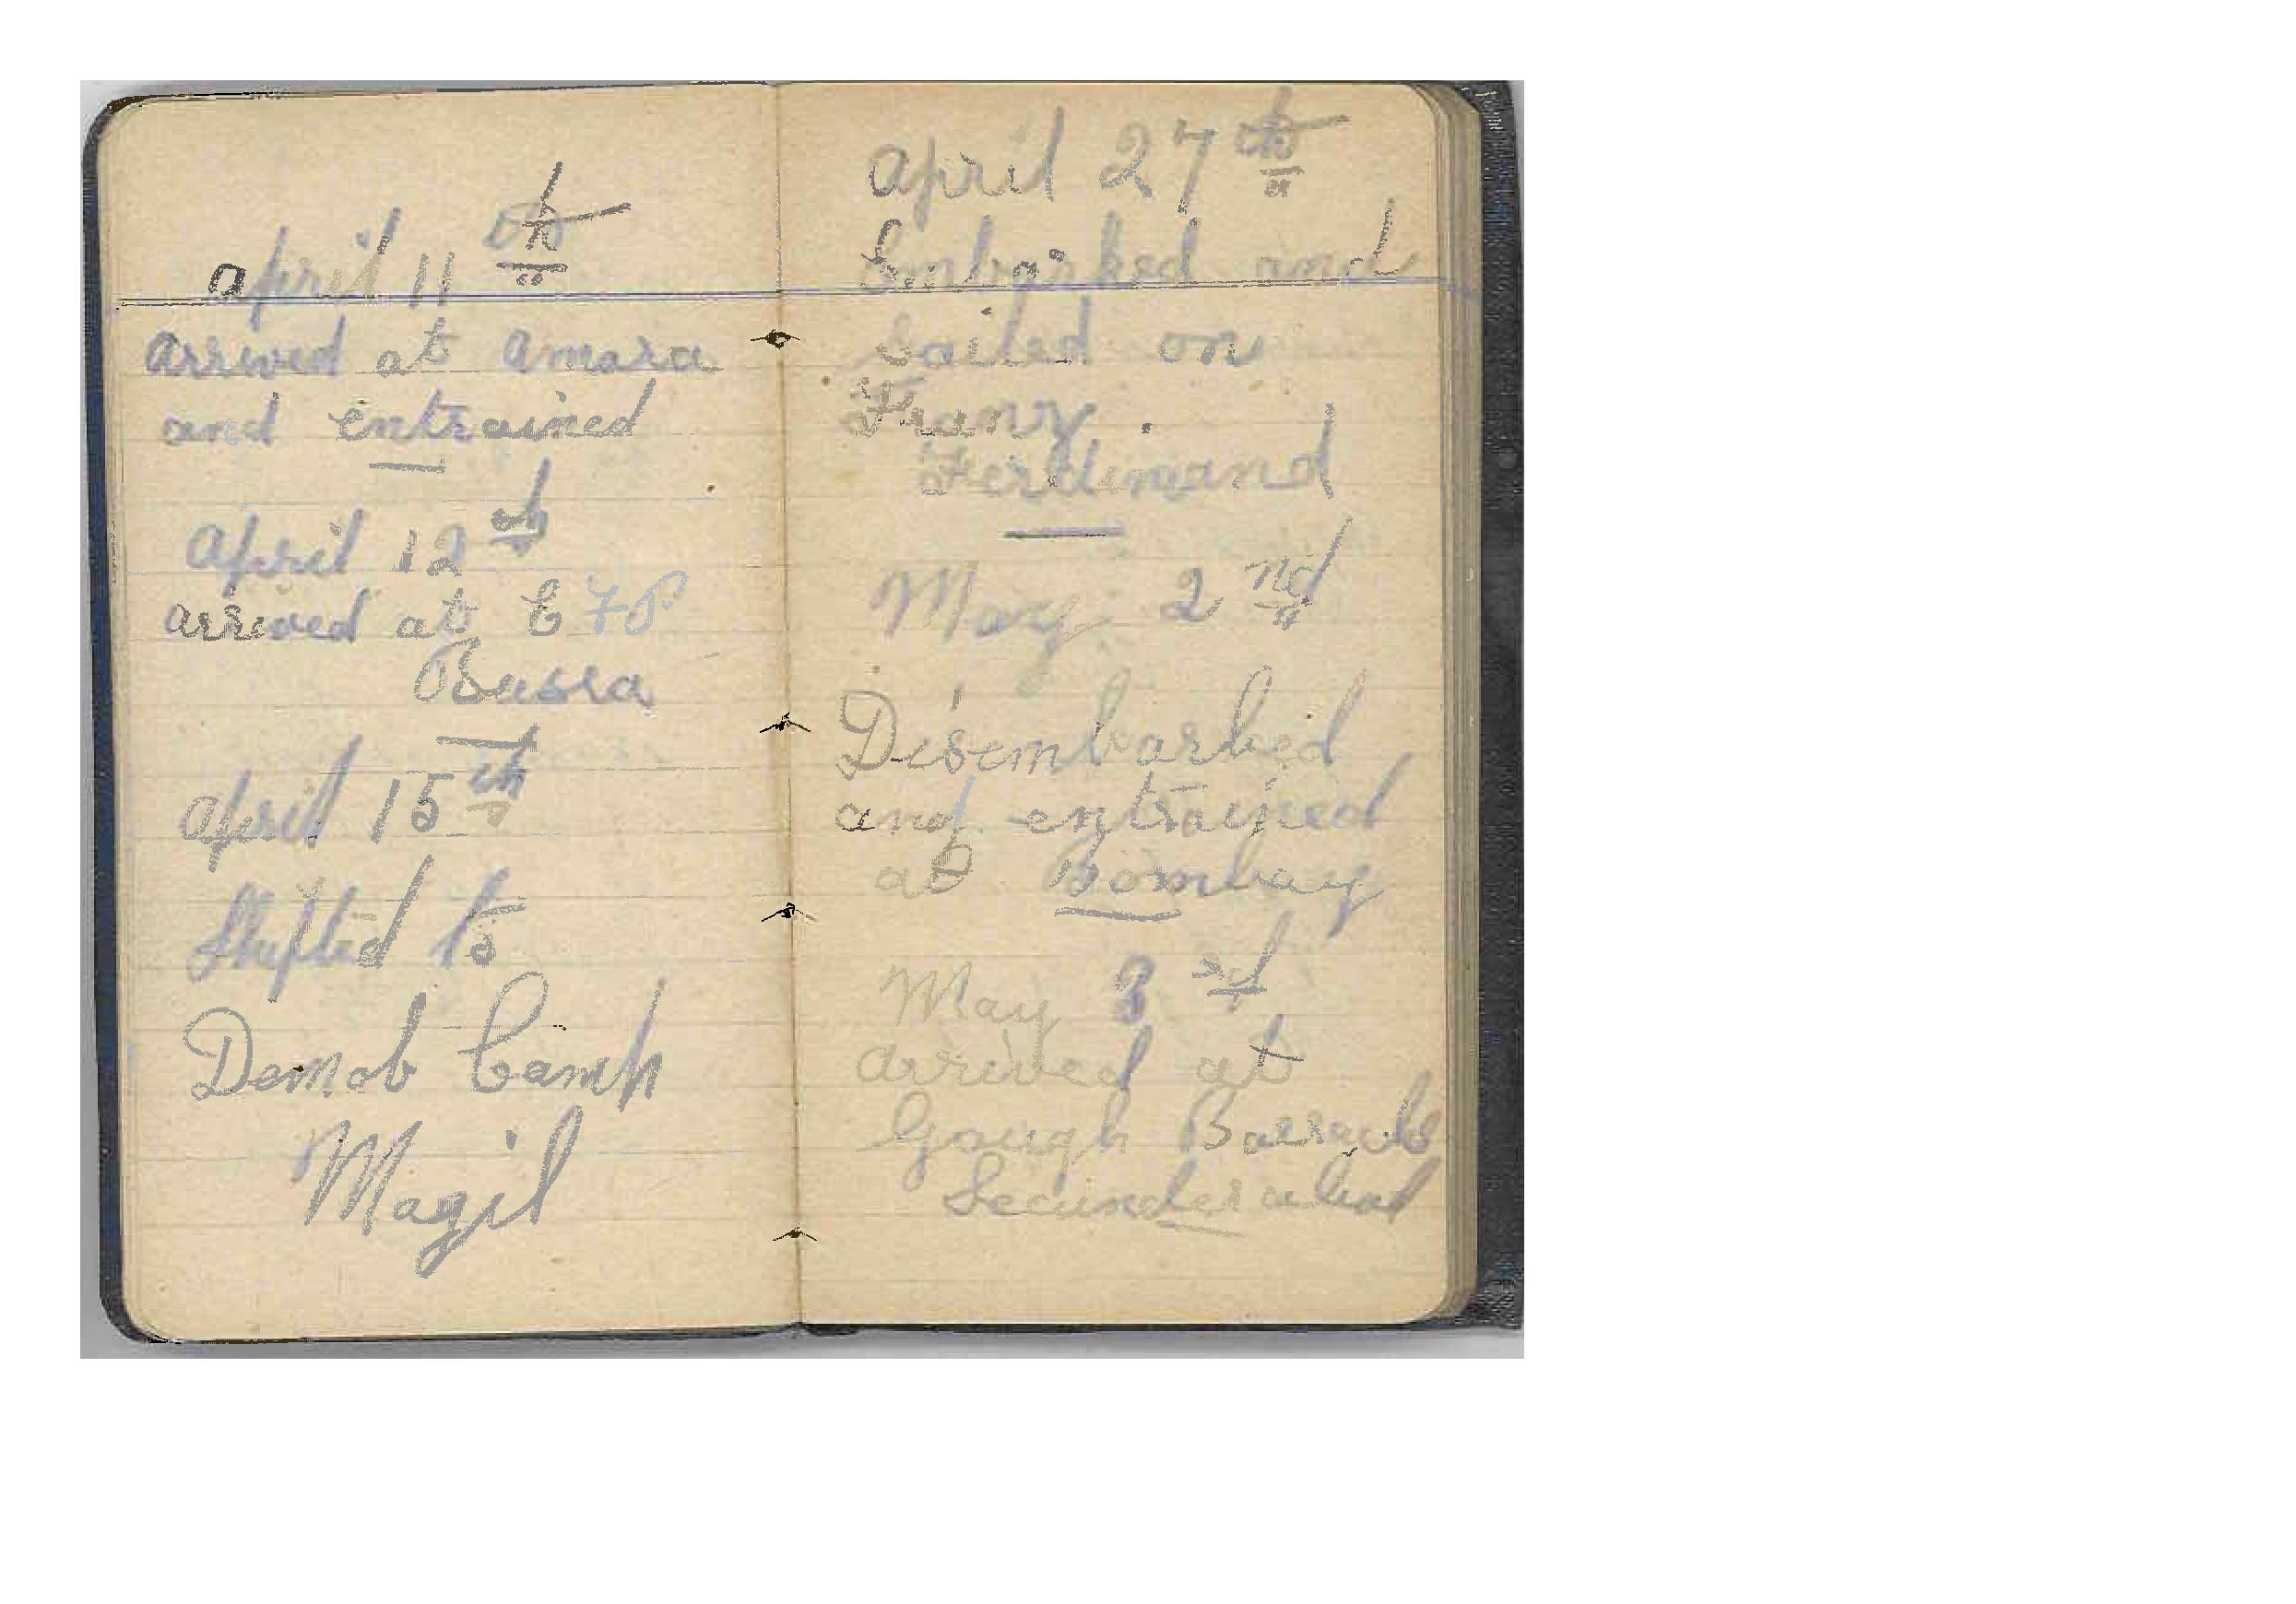 April 11th
arrived at Amara
and entrained
April 12th
arrived at
Busra
April 15th
Shifted to
Demob Camp
Magil
April 27th
Embarked and
Sailed on
Franz
Ferdinand
May 2nd
Disembarked
and entrained
at Bombay
May 3rd
arrived at
Gough Barracks
Secunderabad